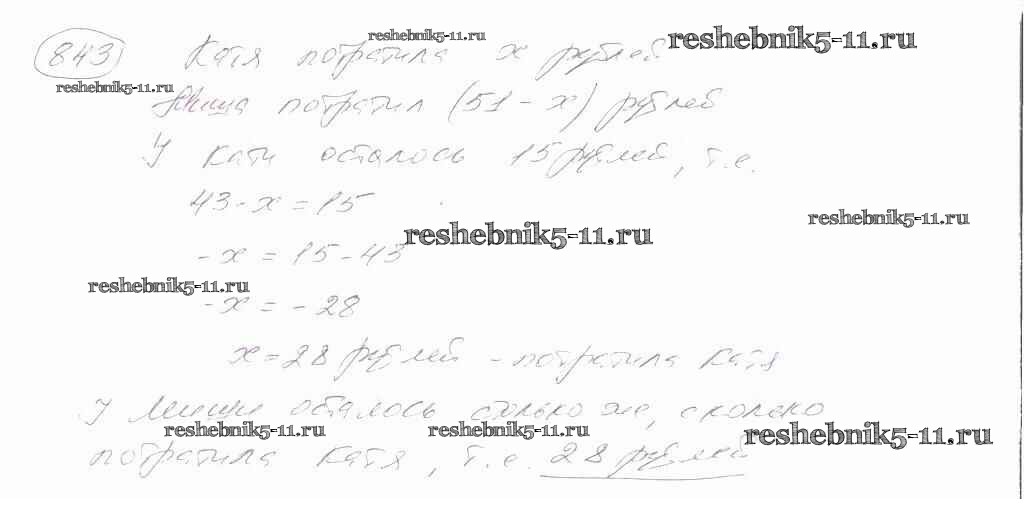 843 Катя потратила x рублей
Миша потратил (51 - x) рублей
У Кати осталось 15 рублей, т.е.
43 - x = 15
- x = 15 - 43
- x = - 28
x = 28 рублей - потратила Катя
У Миши осталось столько же, сколько
потратила Катя, т.е. 28 рублей
reshebnik5-11.ru
reshebnik5-11.ru
reshebnik5-11.ru
reshebnik5-11.ru
reshebnik5-11.ru
reshebnik5-11.ru
reshebnik5-11.ru
reshebnik5-11.ru
reshebnik5-11.ru